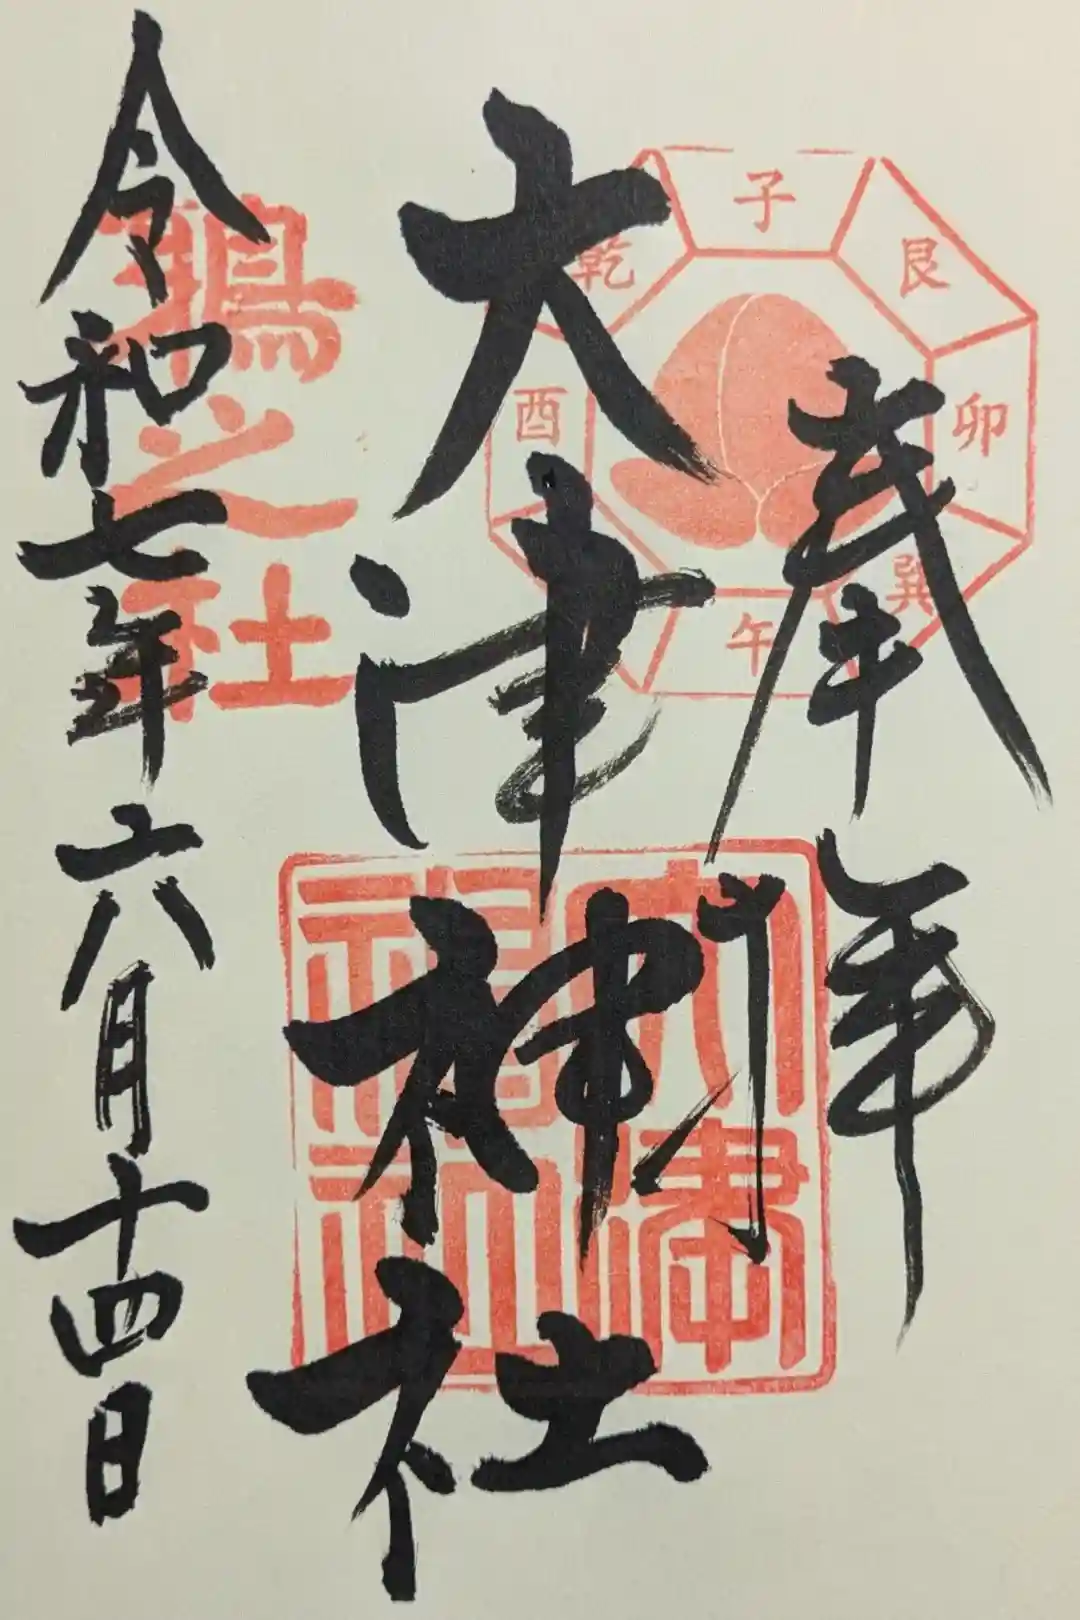 奉拝
大津神社
令和七年六月十四日
子
艮
卯
巽
午
酉
乾
之社
大津
神社